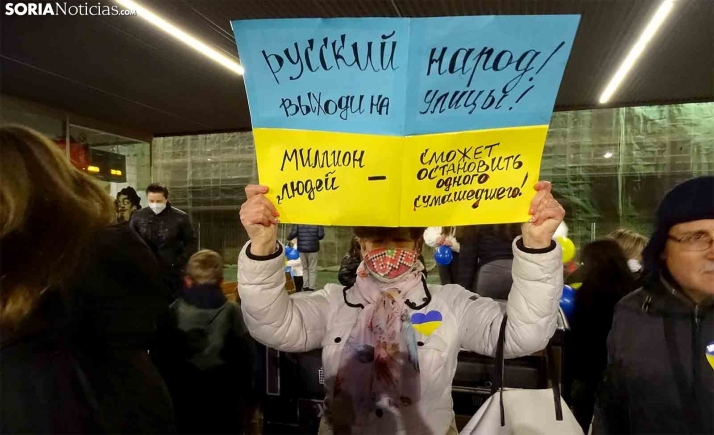 SORIANoticias.com
Русский народ!
выходи на улицы!
миллион людей —
сможет остановить одного сумашедшего!